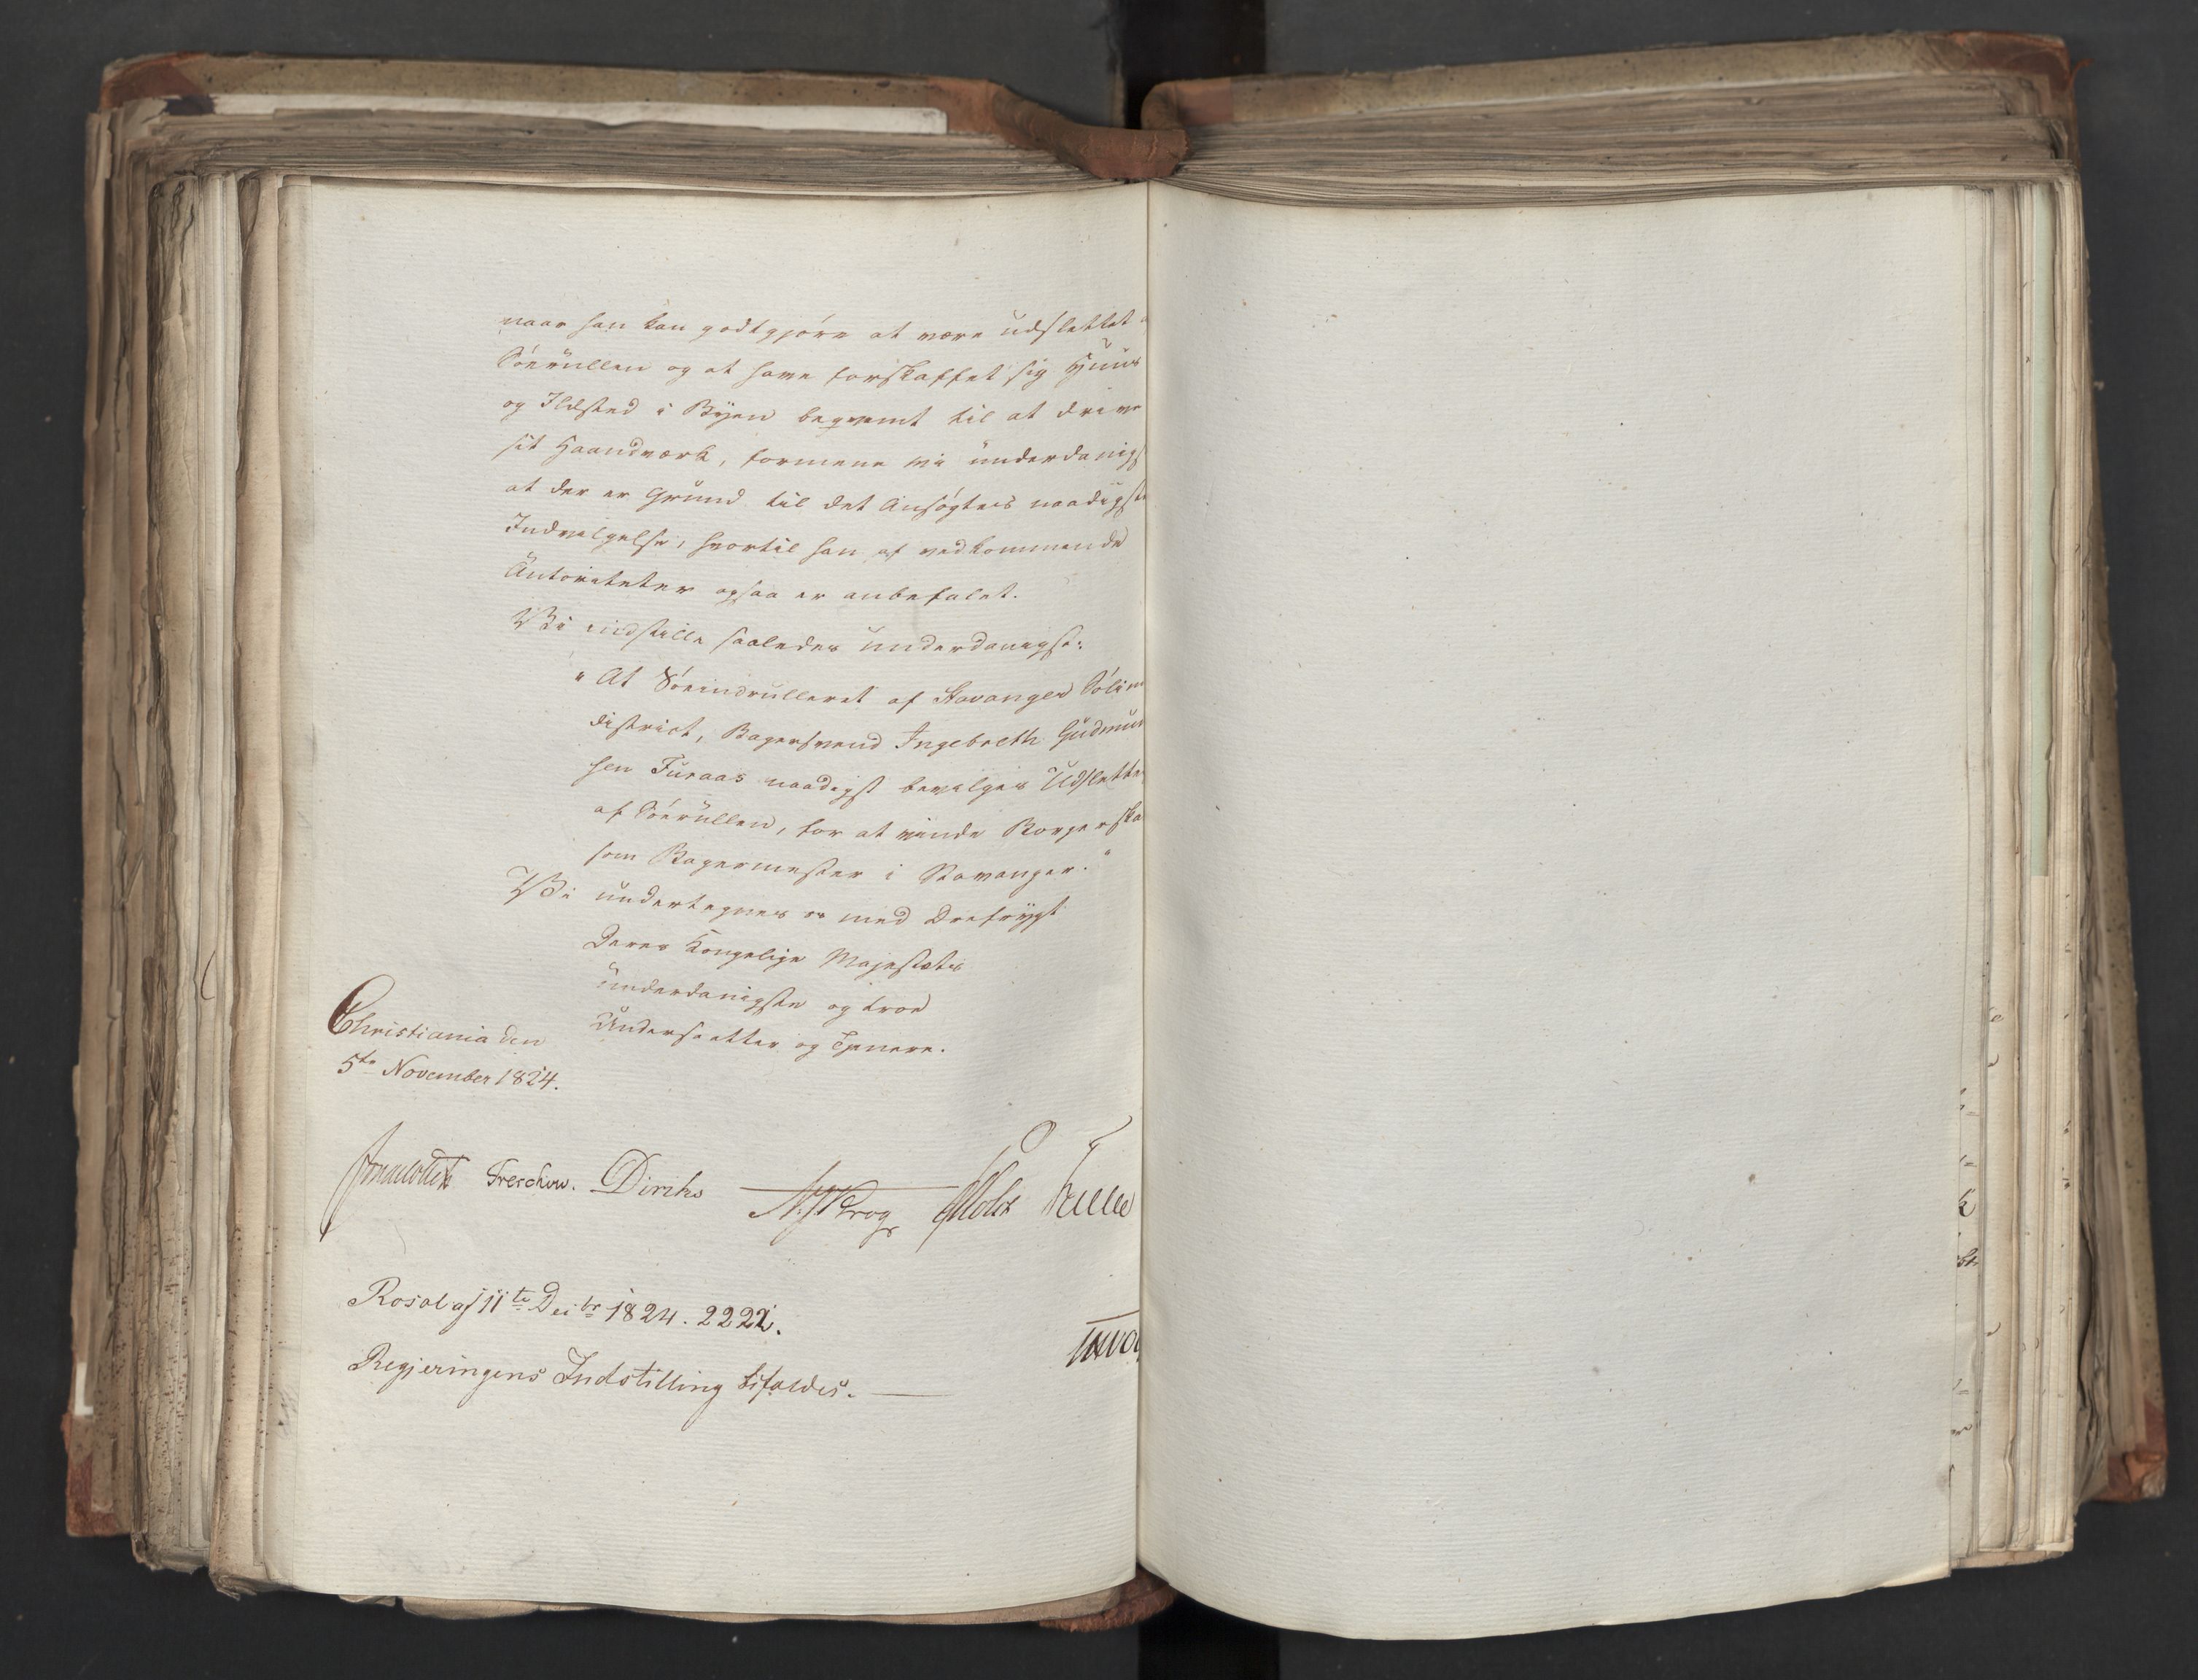 naar han kan godtgjøre at være udslettet
Søerullen og at have forskaffet sig Huus
og Ildsted i Byen beqvemt til at drive
sit Haandværk, formene vi underdanigst
at der er Grund til det Ansøgtes naadigste
Indvilgelse, hvortil han af vedkommende
Autoriteter ogsaa er anbefalet.
Vi indstille saaledes underdanigst:
"At Søeindrulleret af Stavanger Sølim
district, Bagersvend Ingebreth Gudmun
sen Furaas naadigst bevilges Udslette
af Søerullen, for at vinde Borgerska
som Bagermester i Stavanger."
Vi undertegnes os med Ærefrygt
Deres Kongelige Majestæts
underdanigste og troe
Undersaatter og Tjenere.
Christiania den
5te November 1824.
Treschow. Diriks Krog Holst
Resol af 11te Decbr 1824. 2222.
Regjeringens Indstilling bifaldes.